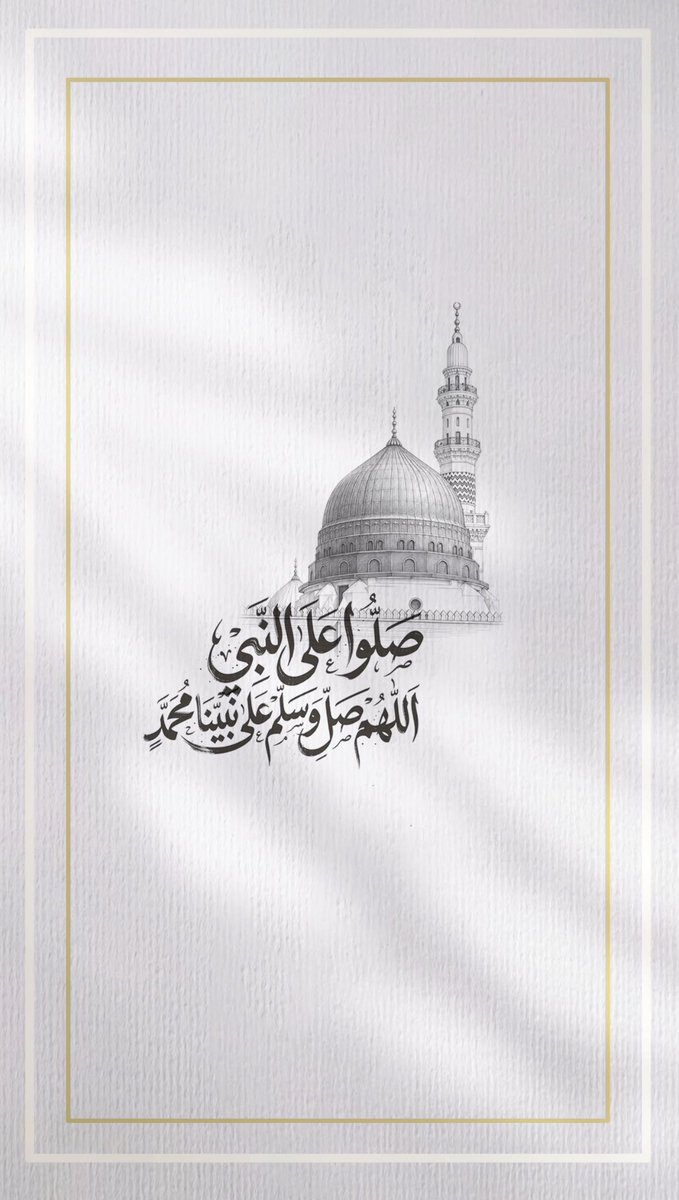 صَلُّوا عَلَى النَّبِي
اَللّٰهُمَّ صَلِّ وَسَلِّمْ عَلَى نَبِيِّنَا مُحَمَّدٍ